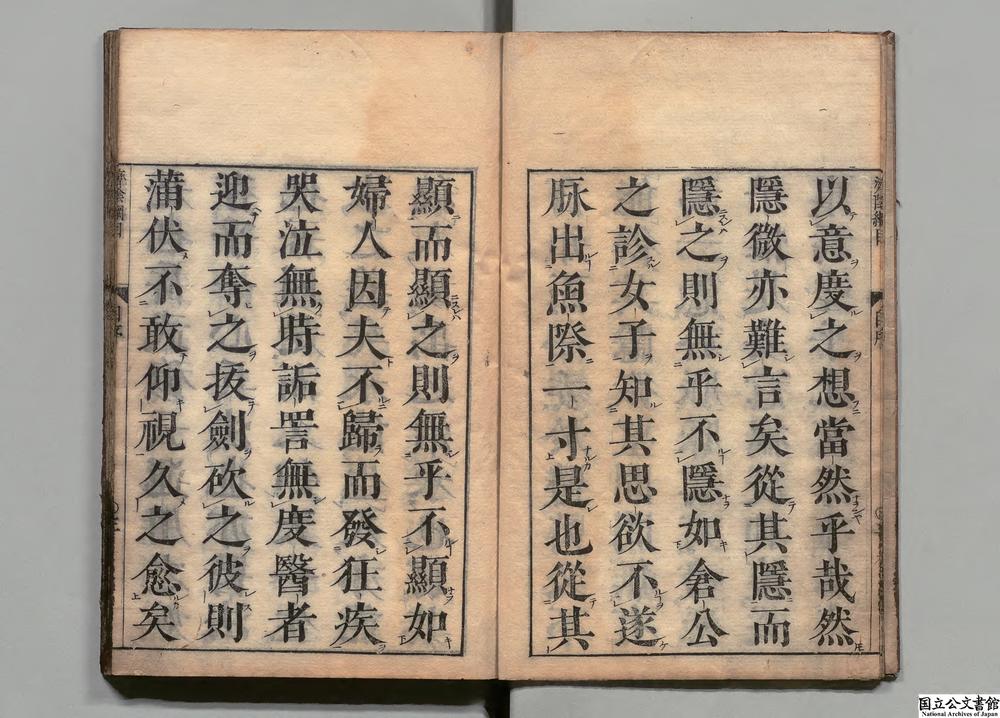 以意度之想當然乎哉然
隱微亦難言矣從其隱而
隱之則無乎不隱如倉公
之診女子知其思欲不遂
脉出魚際一寸是也從其
顯而顯之則無乎不顯如
婦人因夫不歸而發狂疾
哭泣無時詬詈無度醫者
迎而奪之拔劍砍之彼則
蒲伏不敢仰視久之愈矣
国立公文書館
National Archives of Japan